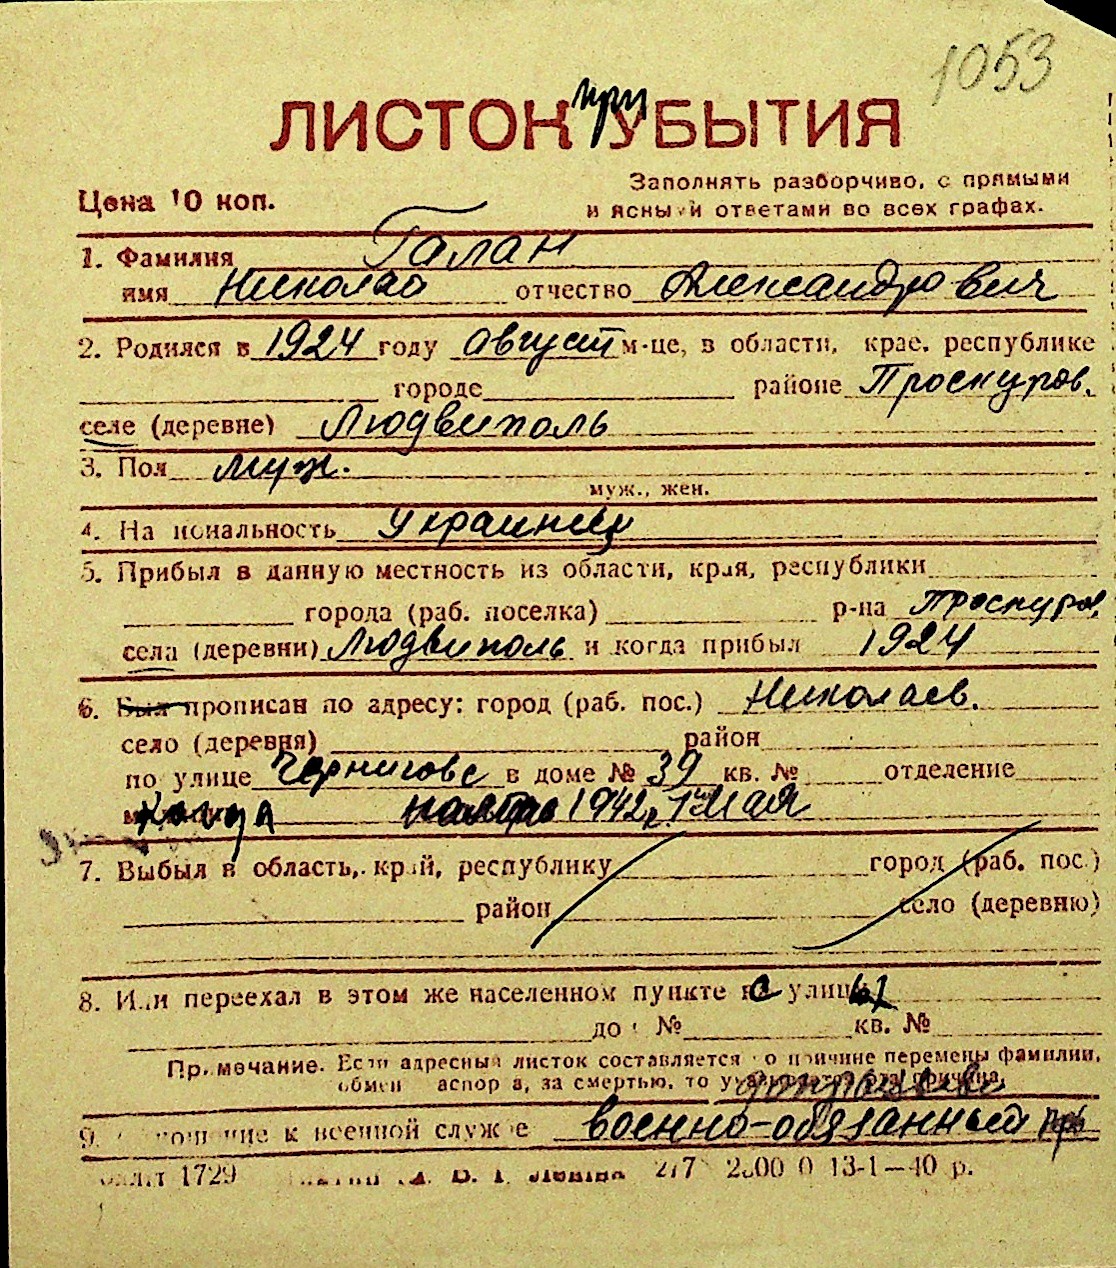 1053
ЛИСТОК при УБЫТИЯ
Цена 10 коп.
Заполнять разборчиво, с прямыми
и ясными ответами во всех графах.
1. Фамилия Галан
имя Николай отчество Александрович
2. Родился в 1924 году август м-це, в области, крае, республике
городе районе Проскуров.
селе (деревне) Людвиполь
3. Пол муж.
муж., жен.
4. Национальность Украинец
5. Прибыл в данную местность из области, края, республики
города (раб. поселка) р-на Проскуров.
села (деревни) Людвиполь и когда прибыл 1924
6. Был прописан по адресу: город (раб. пос.) Николаев.
село (деревня) район
по улице Чернигове в доме № 39 кв. № отделение
Когда 1942 г. 1 Мая
7. Выбыл в область, край, республику город (раб. пос.)
район село (деревню)
8. Или переехал в этом же населенном пункте с улицы
до № кв. №
Примечание. Если адресный листок составляется по причине перемены фамилии,
обмен паспорта, за смертью, то
9. Отношение к военной службе военно-обязанный
1729 277 13-1—40 р.